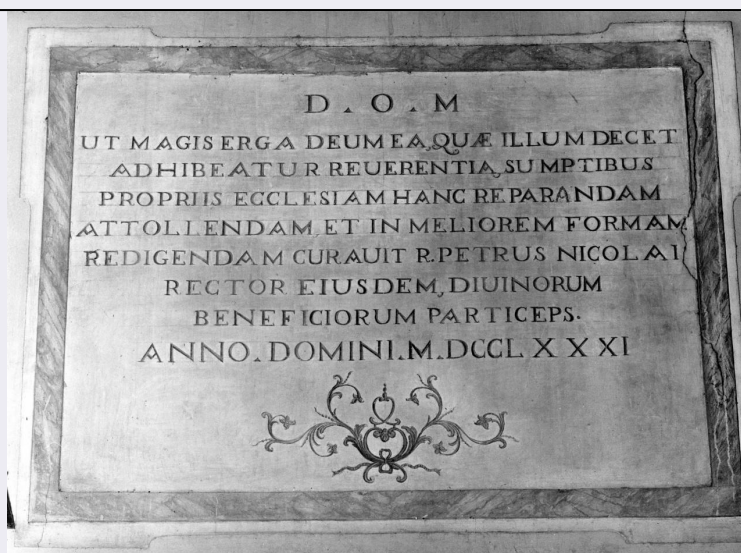 D . O . M
UT MAGIS ERGA DEUM EA, QUÆ ILLUM DECET
ADHIBEATUR REUERENTIA, SUMPTIBUS
PROPRIIS ECCLESIAM HANC REPARANDAM
ATTOLLENDAM, ET IN MELIOREM FORMAM
REDIGENDAM CURAUIT R. PETRUS NICOLAI
RECTOR EIUSDEM, DIUINORUM
BENEFICIORUM PARTICEPS.
ANNO . DOMINI . M . DCCLXXXI